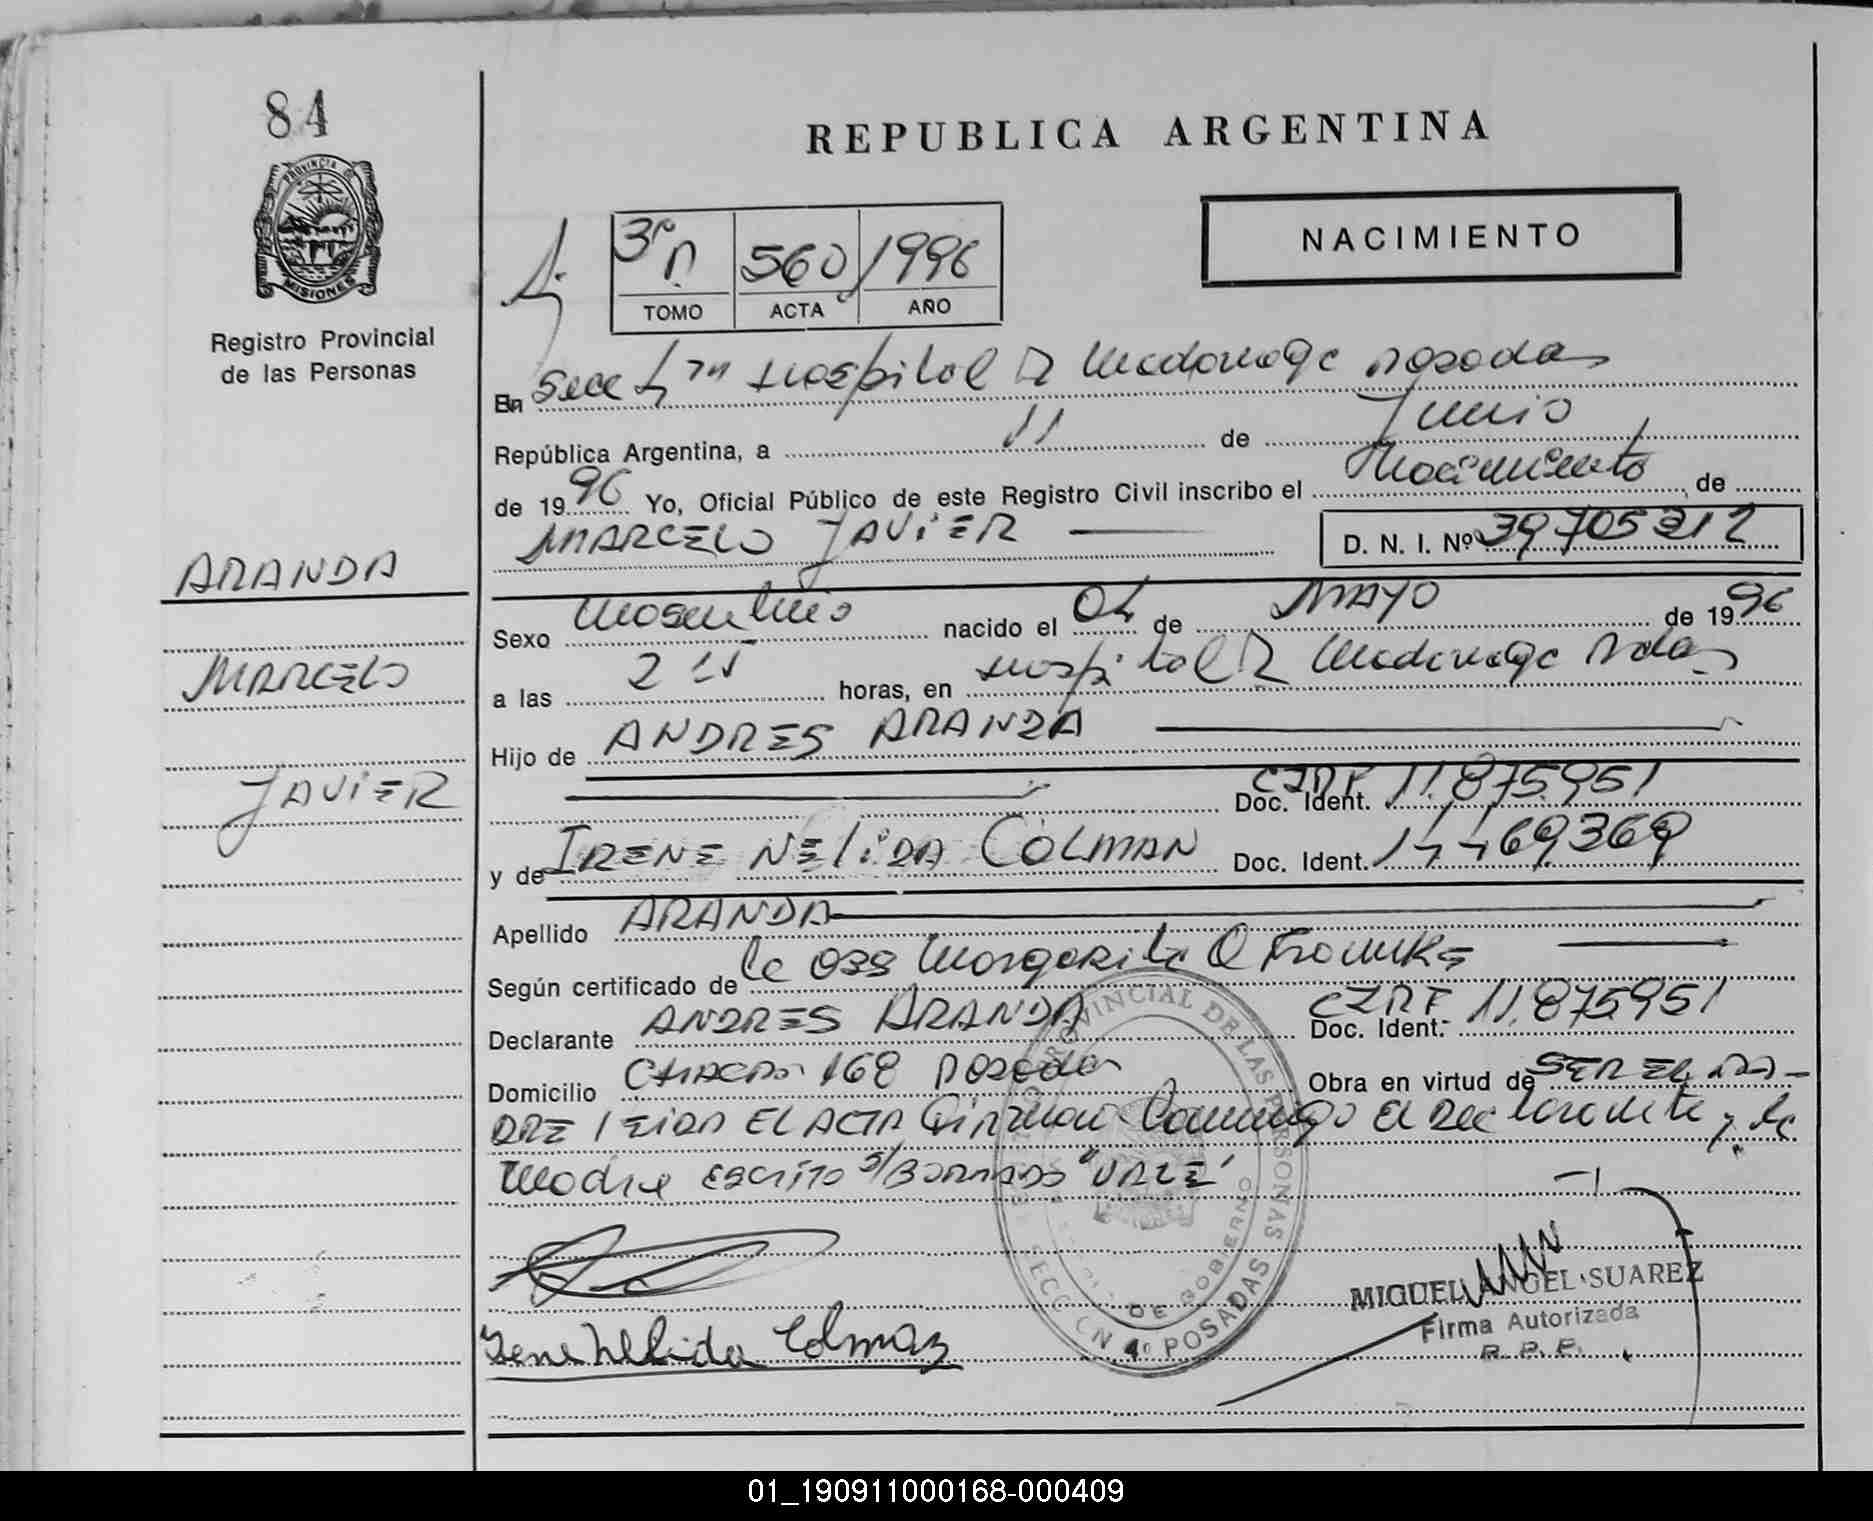 84
REPUBLICA ARGENTINA
PROVINCIA DE
MISIONES
Registro Provincial
de las Personas
3º 560 1996
TOMO ACTA AÑO
NACIMIENTO
En Secc Hospital R Madariaga Posadas
República Argentina, a 11 de Junio
de 1996 Yo, Oficial Público de este Registro Civil inscribo el Nacimiento, de
MARCELO JAVIER D. N. I. Nº 39705212
ARANDA
MARCELO
JAVIER
Sexo Masculino nacido el 04 de MAYO de 1996
a las 2 15 horas, en Hospital R Madariaga Pdas
Hijo de ANDRES ARANDA
Doc. Ident. 11.875951
y de IRENE NELIDA COLMAN Doc. Ident. 14469369
Apellido ARANDA
Según certificado de la OSS Margarita
Declarante ANDRES ARANDA Doc. Ident. 11.875951
Domicilio CHACRA 168 Posadas Obra en virtud de SER EL PA-
DRE LEIDA EL ACTA FIRMAN Conmigo El Declarante y la
Madre ESCRITO S/BORRADO "
Irene Nelida Colman
PROVINCIAL DE LAS PERSONAS
DE GOBIERNO
SECCION 4º POSADAS
MIGUEL ANGEL SUAREZ
Firma Autorizada
R. P. P.
01_190911000168-000409